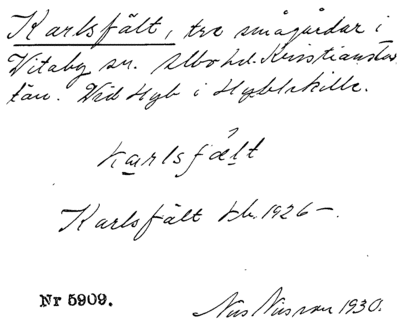 Karlsfält, tre smågårdar i
Vitaby sn. Albo hd. Kristianstads
län. Vid Hyb i Hyblskille.
karlsfält
Karlsfält kb. 1926 –.
Nr 5909.
Nils Nilsson 1930.